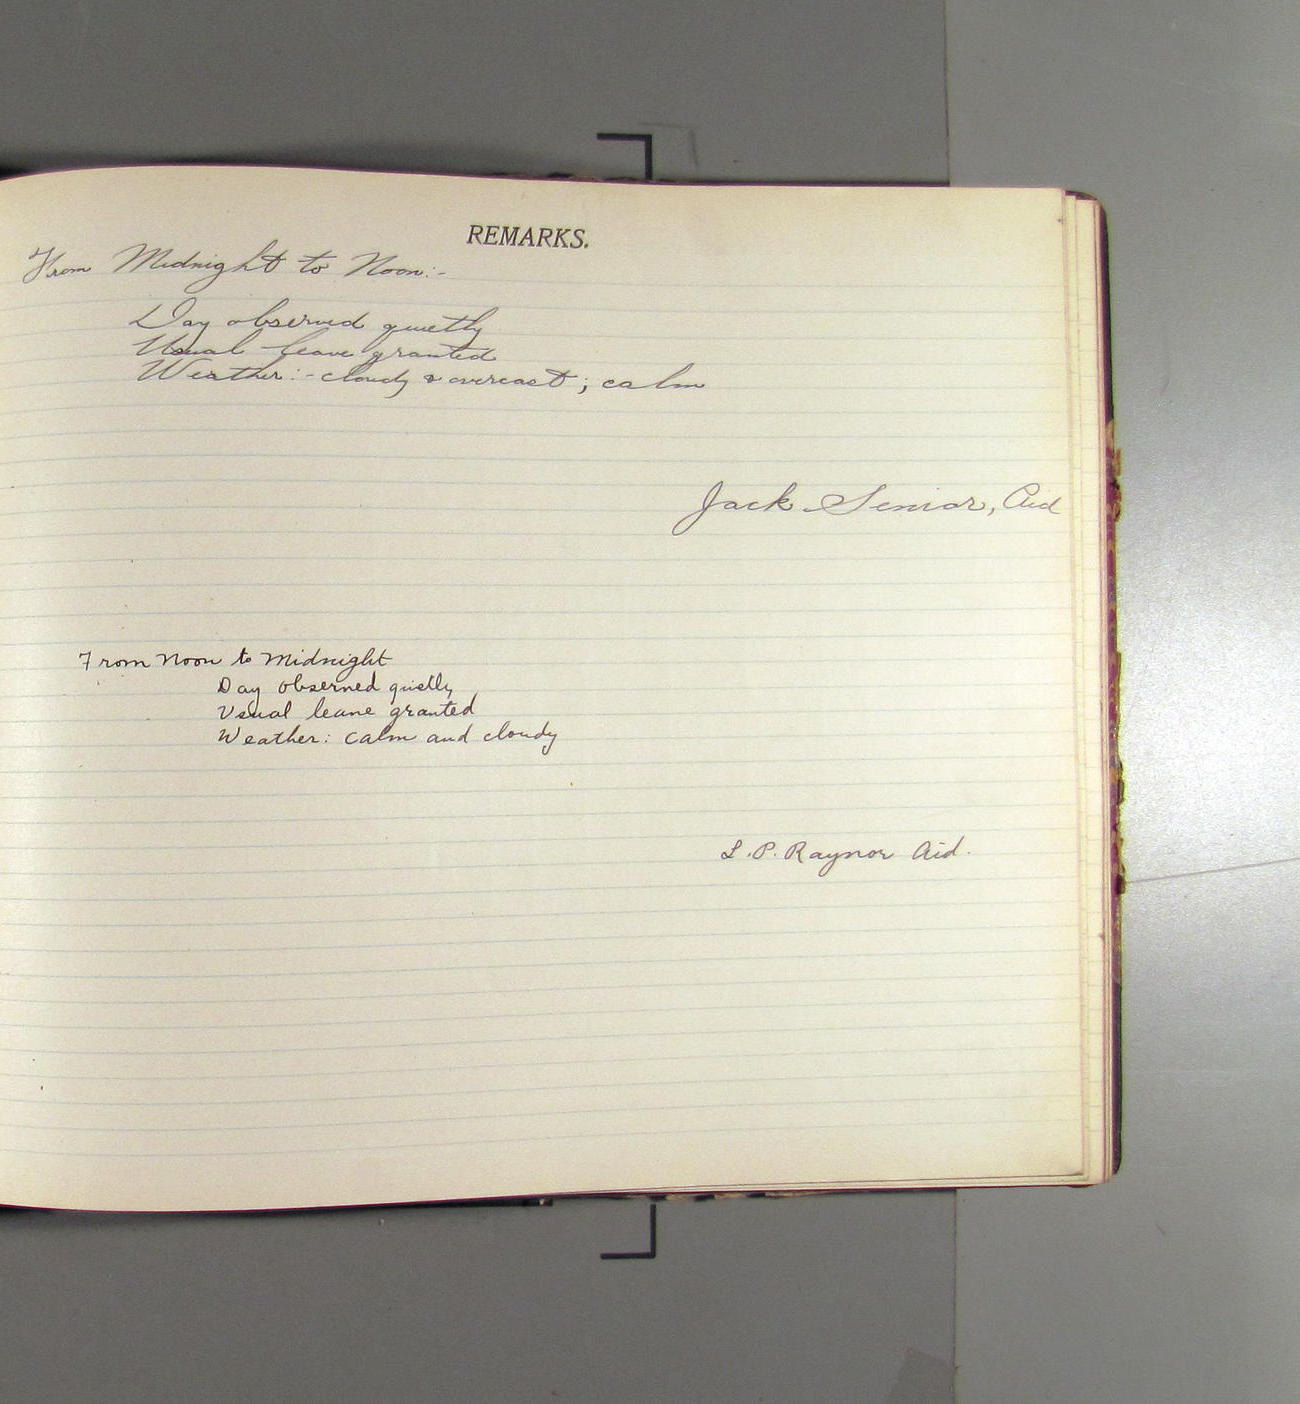 REMARKS.
From Midnight to Noon:-
Day observed quietly
Usual leave granted
Weather:- cloudy & overcast; calm
Jack Senior, Aid
From Noon to Midnight
Day observed quietly
Usual leave granted
Weather: Calm and cloudy
L.P. Raynor Aid.